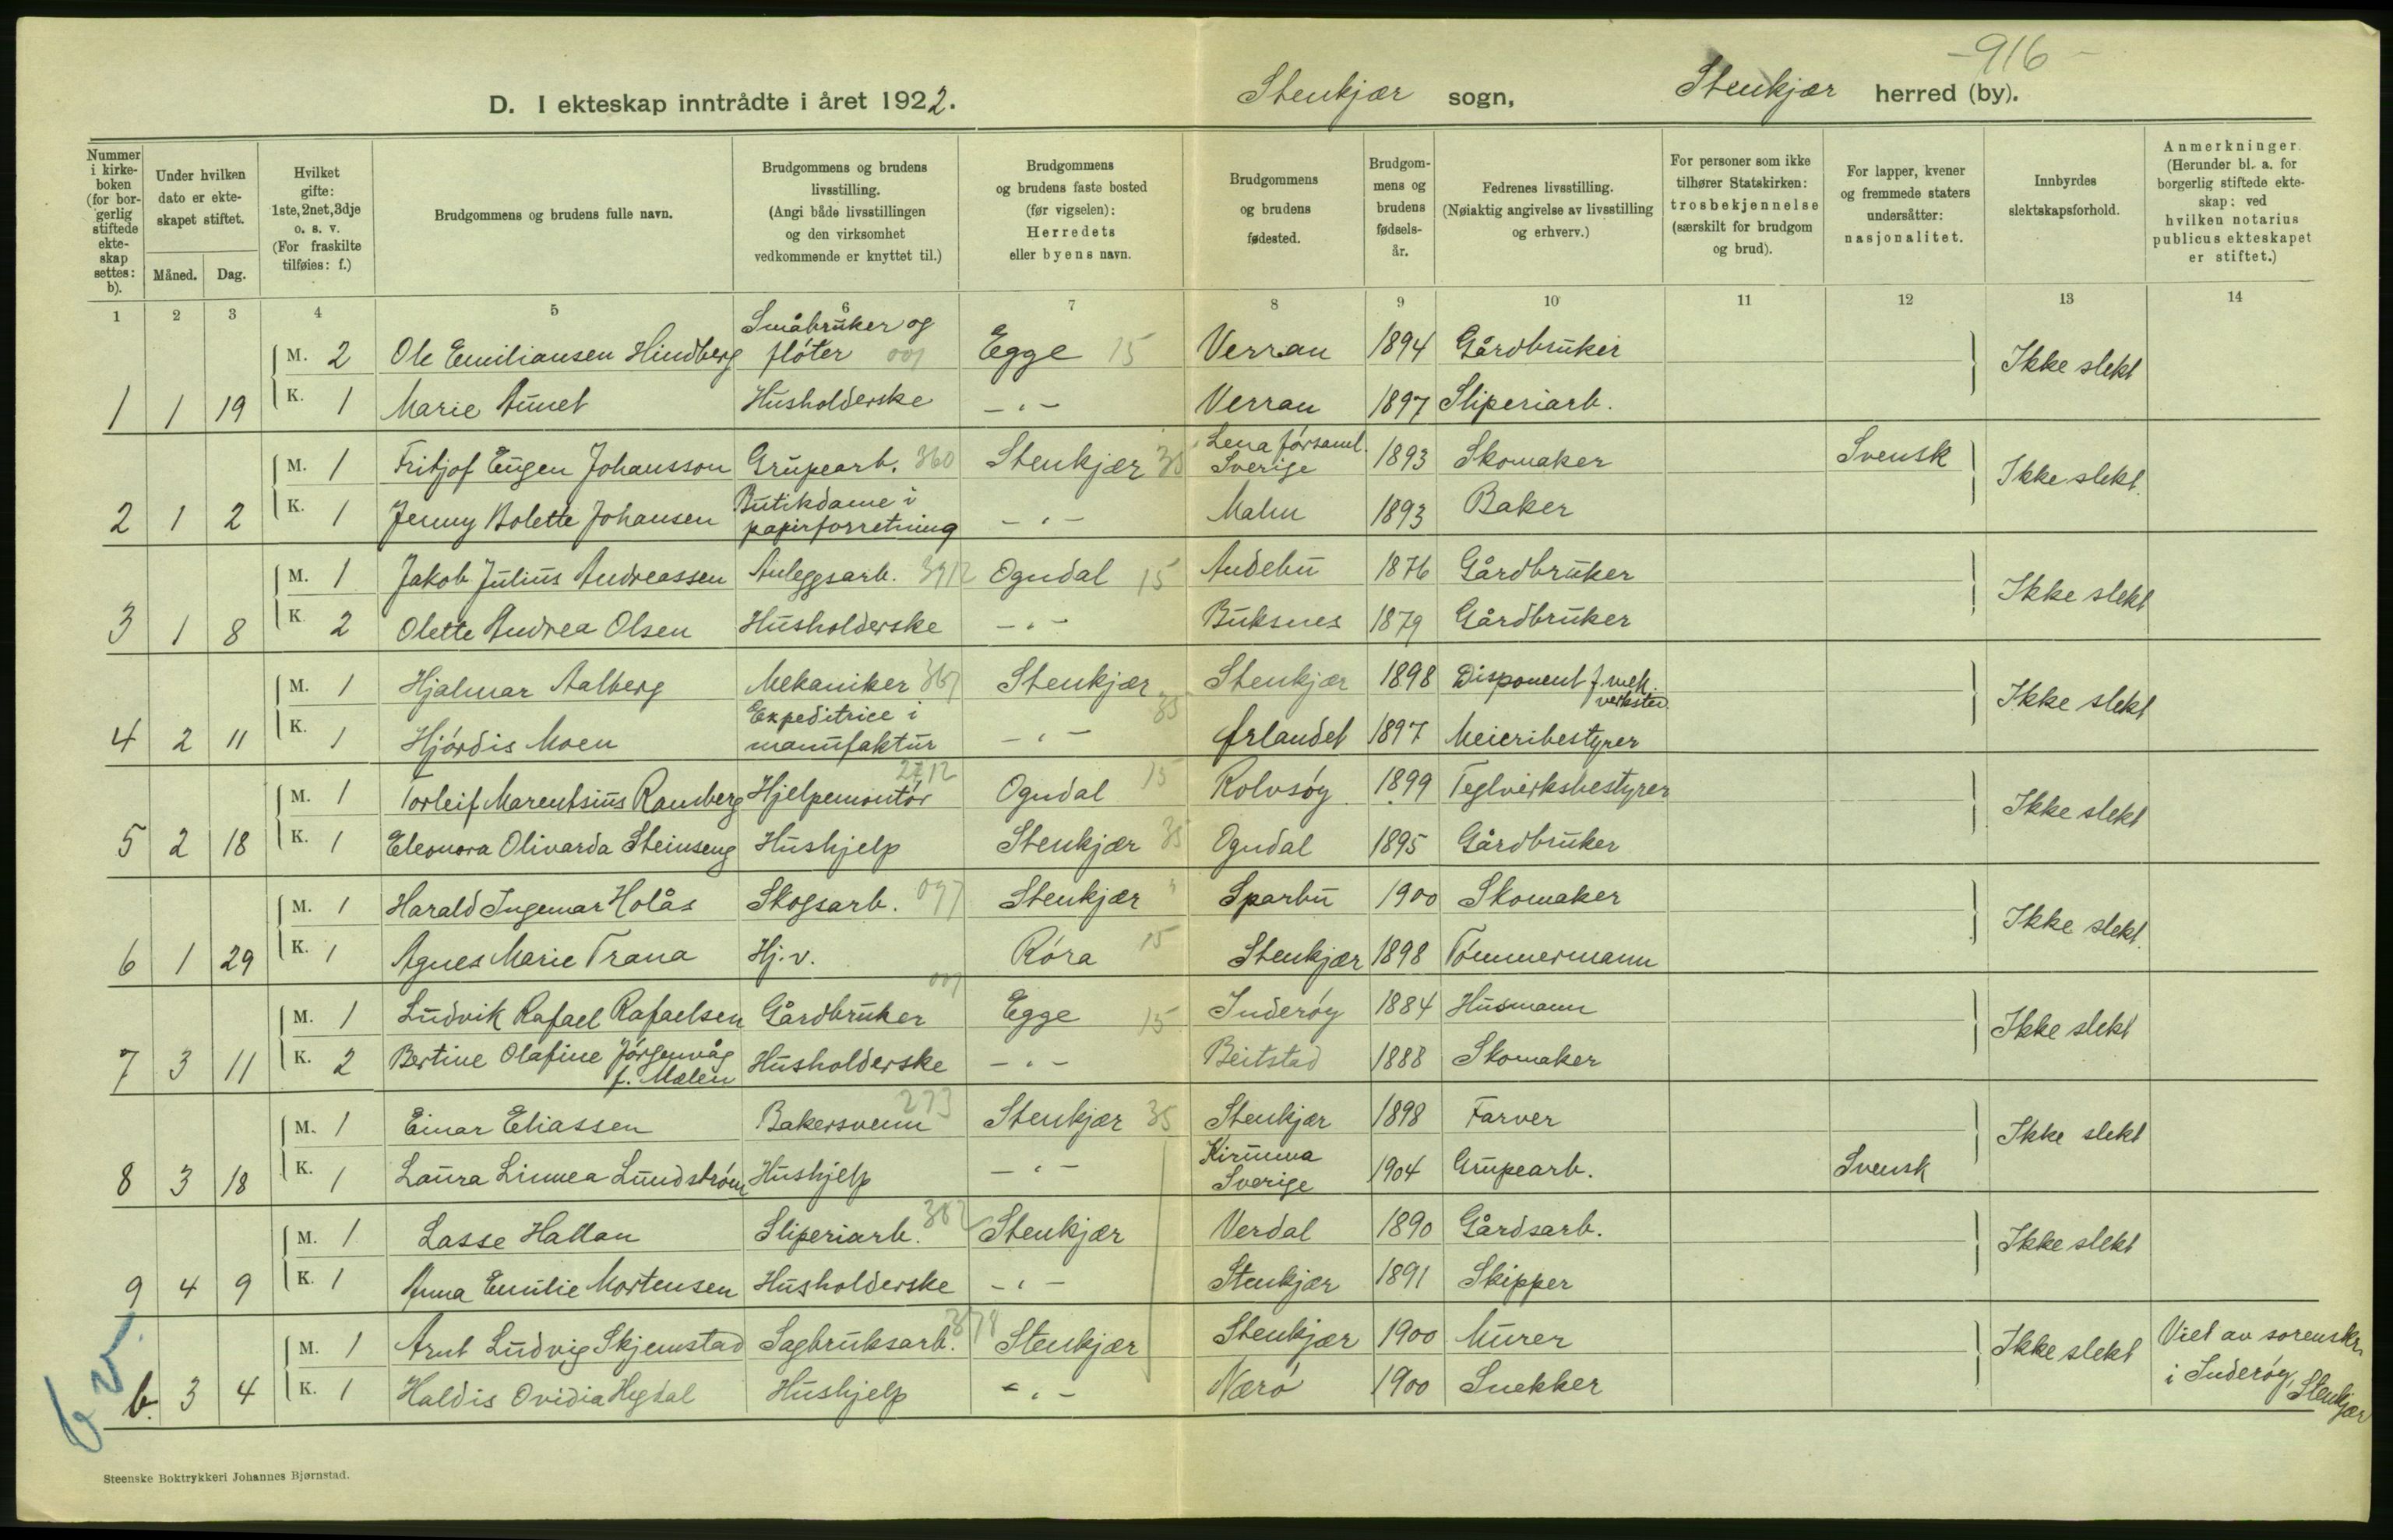 -916-
D. I ekteskap inntrådte i året 1922. Stenkjær sogn, Stenkjær herred (by).
Nummer i kirkeboken (for borgerlig stiftede ekteskap settes: b).
Under hvilken dato er ekteskapet stiftet.
Måned. Dag.
Hvilket gifte: 1ste, 2net, 3dje o. s. v. (For fraskilte tilføies: f.)
Brudgommens og brudens fulle navn.
Brudgommens og brudens livsstilling. (Angi både livsstillingen og den virksomhet vedkommende er knyttet til.)
Brudgommens og brudens faste bosted (før vigselen): Herredets eller byens navn.
Brudgommens og brudens fødested.
Brudgommens og brudens fødselsår.
Fedrenes livsstilling. (Nøiaktig angivelse av livsstilling og erhverv.)
For personer som ikke tilhører Statskirken: trosbekjennelse (særskilt for brudgom og brud).
For lapper, kvener og fremmede staters undersåtter: nasjonalitet.
Innbyrdes slektskapsforhold.
Anmerkninger. (Herunder bl. a. for borgerlig stiftede ekteskap: ved hvilken notarius publicus ekteskapet er stiftet.)
1 2 3 4 5 6 7 8 9 10 11 12 13 14
M. 2 Ole Emiliansen Hindberg Småbruker og fløter 001 Egge 15 Verran 1894 Gårdbruker Ikke slekt
1 1 19 K. 1 Marie Aunet Husholderske -"- Verran 1897 Sliperiarb.
M. 1 Fritjof Eugen Johansson Grupearb. 360 Stenkjær 35 Lena församl. Sverige 1893 Skomaker Svensk Ikke slekt.
2 1 2 K. 1 Jenny Bolette Johansen Butikdame i papirforretning -"- Malm 1893 Baker
M. 1 Jakob Julius Andreassen Anleggsarb. 3912 Ogndal 15 Andebu 1876 Gårdbruker Ikke slekt
3 1 8 K. 2 Olette Andrea Olsen Husholderske -"- Buksnes 1879 Gårdbruker
M. 1 Hjalmar Aalberg Mekaniker 367 Stenkjær 35 Stenkjær 1898 Disponent f. mek. verksted Ikke slekt
4 2 11 K. 1 Hjórdis Moen Expeditrice i manufaktur -"- Ørlandet 1897 Meieribestyrer
M. 1 Torleif Marentsius Ramberg Hjelpemontór 2712 Ogndal 15 Rolvsóy 1899 Teglverksbestyrer Ikke slekt
5 2 18 K. 1 Eleonora Olivarda Steinseng Hushjelp Stenkjær 35 Ogndal 1895 Gårdbruker
M. 1 Harald Ingemar Holås Skogsarb. 097 Stenkjær Sparbu 1900 Skomaker Ikke slekt.
6 1 29 K. 1 Agnes Marie Trana Hj.v. Róra 15 Stenkjær 1898 Tómmermann
M. 1 Ludvik Rafael Rafaelsen Gårdbruker 001 Egge 15 Inderóy 1884 Husmann Ikke slekt
7 3 11 K. 2 Bertine Olafine Jórgenvåg f. Malen Husholderske -"- Beitstad 1888 Skomaker
M. 1 Einar Eliassen Bakersvenn 273 Stenkjær 35 Stenkjær 1898 Farver Ikke slekt
8 3 18 K. 1 Laura Linnea Lundstróm Hushjelp -"- Kiruna Sverige 1904 Grupearb. Svensk
M. 1 Lasse Hallan Sliperiarb. Stenkjær Verdal 1890 Gårdsarb. Ikke slekt
9 4 9 K. 1 Anna Emilie Mortensen Husholderske -"- Stenkjær 1891 Skipper
M. 1 Arnt Ludvig Skjemstad Sagbruksarb. Stenkjær Stenkjær 1900 Murer Ikke slekt Viet av sorenskr. i Inderóy, Stenkjær
b. 3 4 K. 1 Haldis Ovidia Hegdal Hushjelp -"- Næró 1900 Snekker
Steenske Boktrykkeri Johannes Bjørnstad.